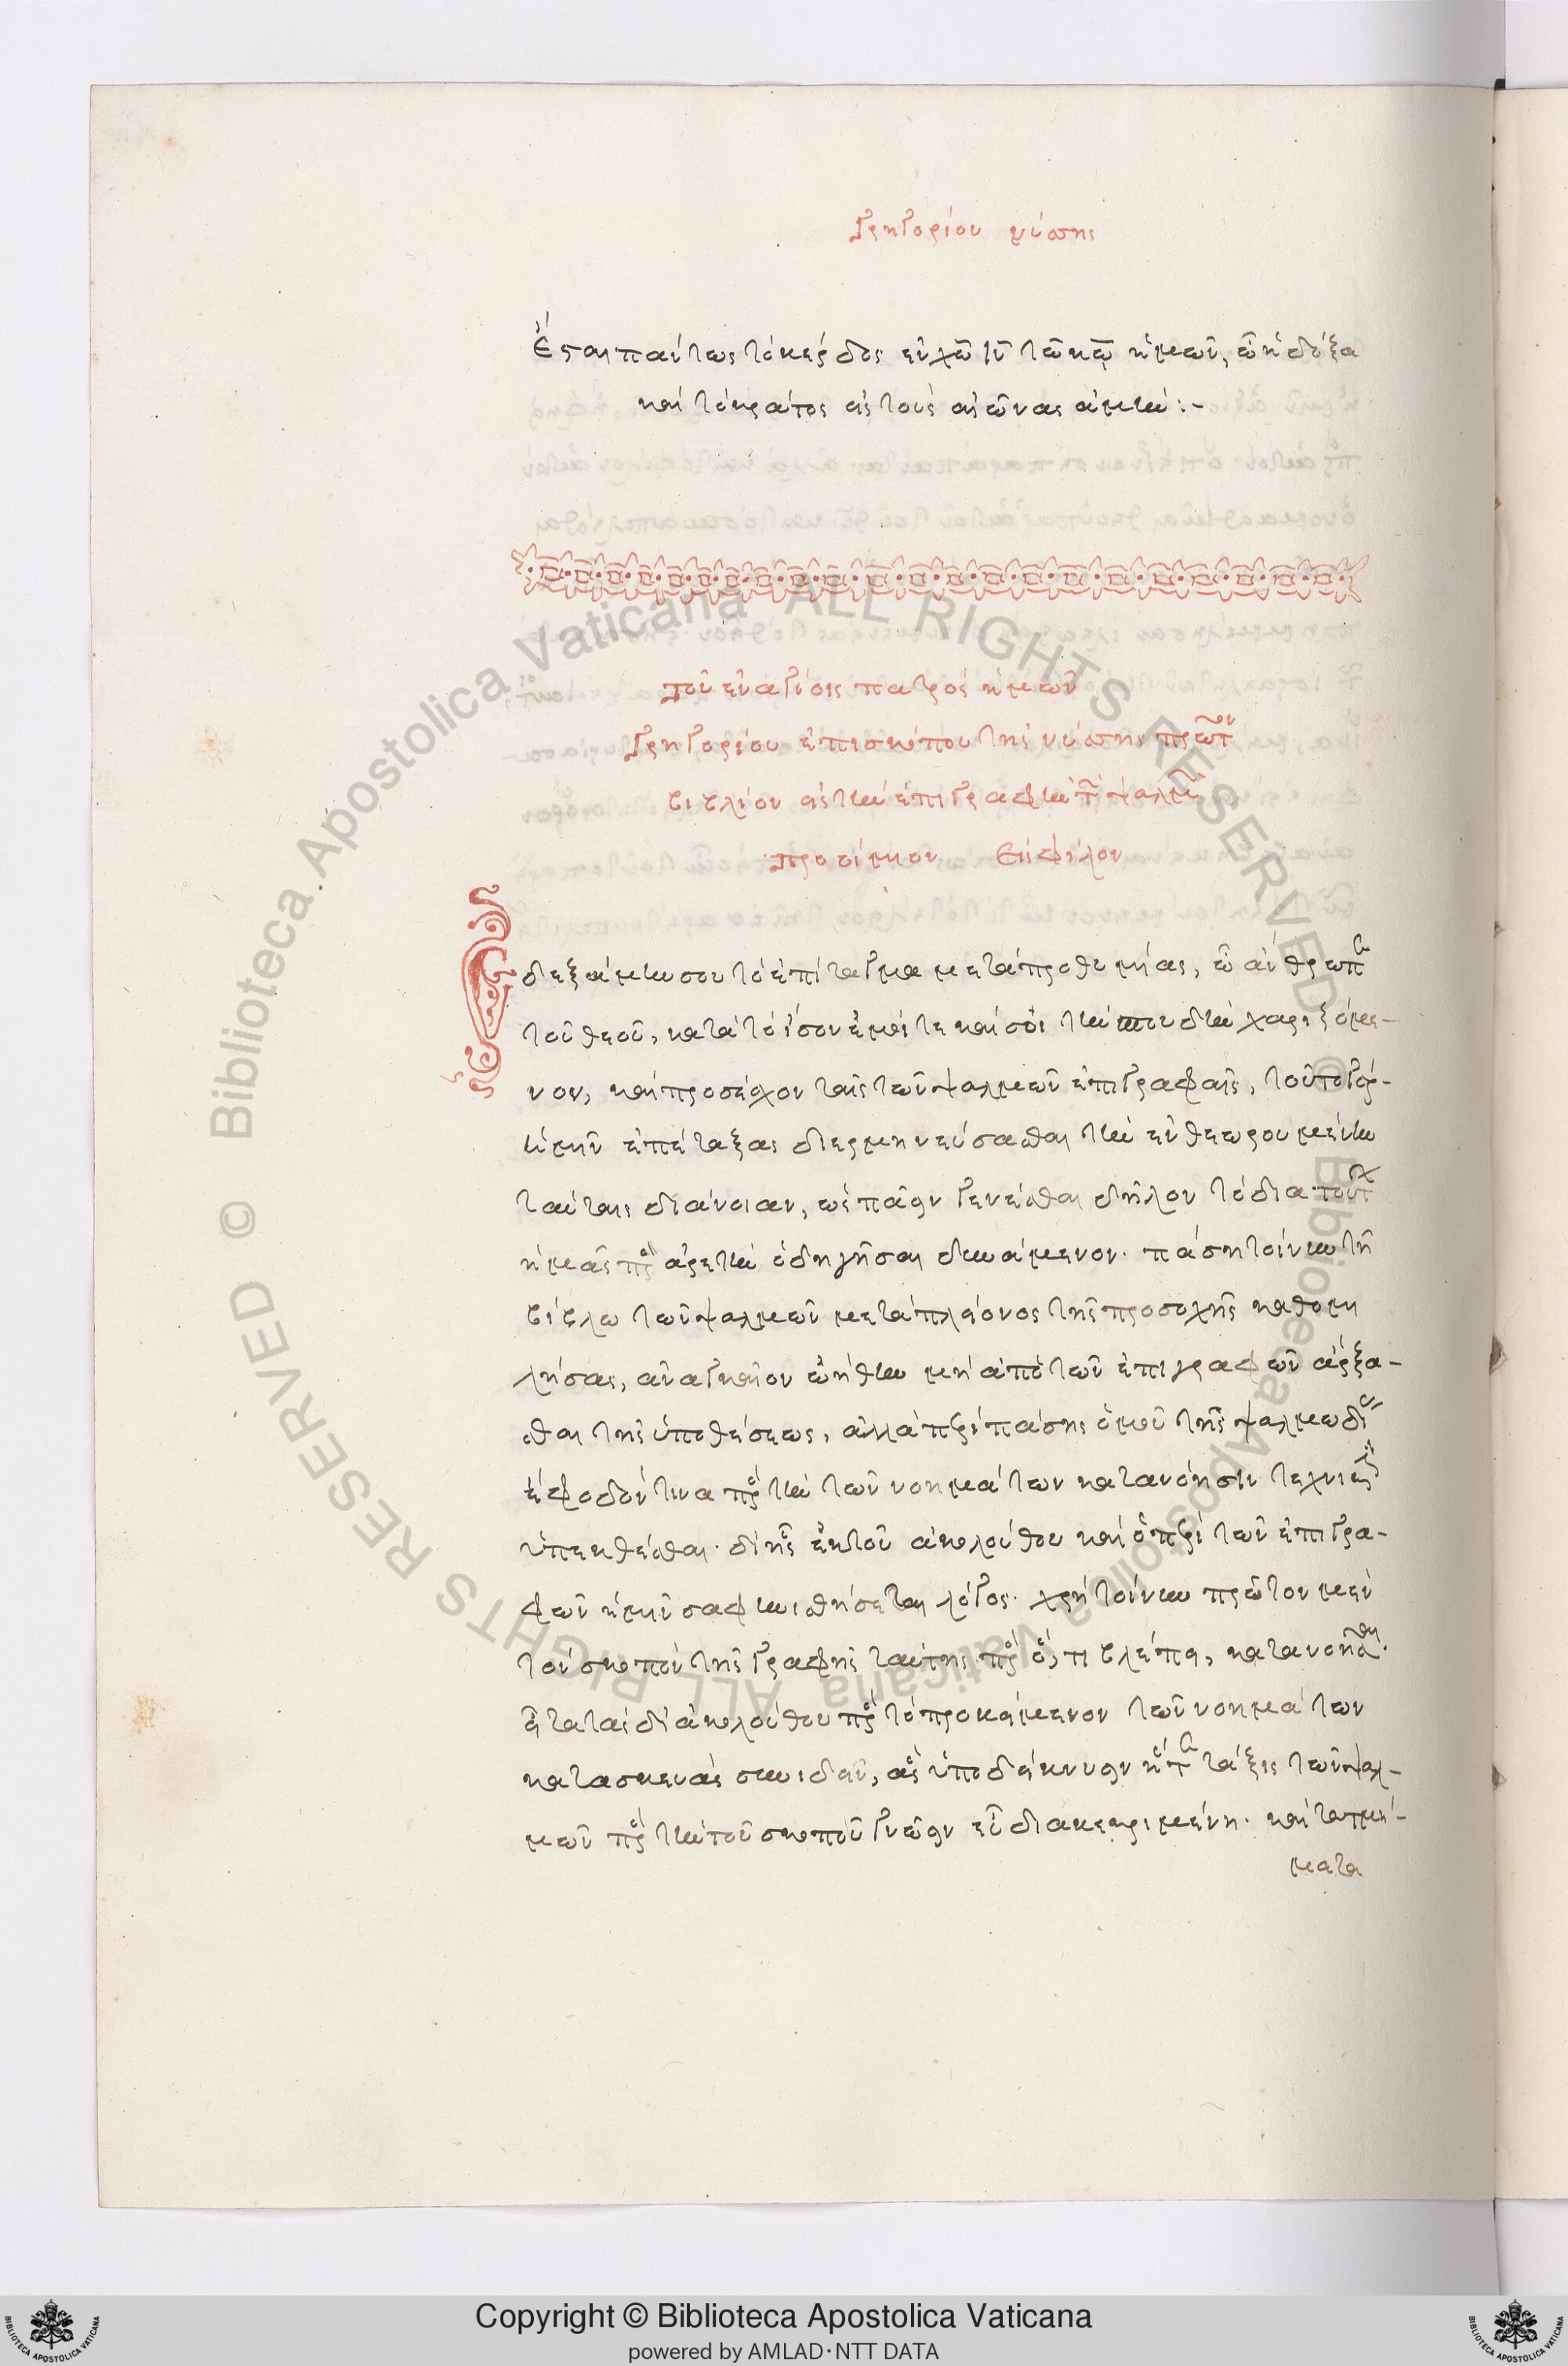 γρηγορίου νύσσης
ἔσται πάντως τὸ κέρδος ἐν χῶ ἰῦ τῶ κῶ ἡμῶν, ὧ ἡ δόξα
καὶ τὸ κράτος εἰς τοὺς αἰῶνας ἀμήν:-
τοῦ ἐν ἁγίοις πατρὸς ἡμῶν
γρηγορίου ἐπισκόπου τῆς νύσσης πρῶτον
βιβλίον εἰς τὴν ἐπιγραφὴν τῶν ψαλμῶν
προοίμιον
ἐδεξάμην σου τὸ ἐπίταγμα μετὰ προθυμίας, ὦ ἄνθρωπε
τοῦ θεοῦ, κατὰ τὸ ἴσον ἐμοί τε καὶ σοὶ τὴν σπουδὴν χαριζόμε-
νον, καὶ προσέσχον ταῖς τῶν ψαλμῶν ἐπιγραφαῖς, τοῦτο γὰρ
ἡμῖν ἐπέταξας διερμηνεύσασθαι τὴν ἐνθεωρουμένην
ταύταις διάνοιαν, ὡς πᾶσιν γενέσθαι δῆλον τὸ διὰ τούτων
ἡμᾶς πρὸς ἀρετὴν ὁδηγῆσαι δυνάμενον. πάσῃ τοίνυν τῆ
βίβλω τῶν ψαλμῶν μετὰ πλείονος τῆς προσοχῆς καθομι
λήσας, ἀναγκαῖον ᾠήθην μὴ ἀπὸ τῶν ἐπιγραφῶν ἄρξα-
σθαι τῆς ὑποθέσεως, ἀλλὰ περὶ πάσης ὁμοῦ τῆς ψαλμωδίας
ἔφοδόν τινα πρὸς τὴν τῶν νοημάτων κατανόησιν τεχνικὴν
ὑπεκθέσθαι. δι' ἧς ἐκ τοῦ ἀκολούθου καὶ ὁ περὶ τῶν ἐπιγρα-
φῶν ἡμῖν σαφηνισθήσεται λόγος. χρὴ τοίνυν πρῶτον μὲν
τὸν σκοπὸν τῆς γραφῆς ταύτης πρὸς ὅ,τι βλέπει, κατανοῆσαι.
ἔπειτα τὰς δι' ἀκολούθου πρὸς τὸ προκείμενον τῶν νοημάτων
κατασκευὰς συνιδεῖν, ἃς ὑποδείκνυσιν ἥ τε τάξις τῶν ψαλ-
μῶν πρὸς τὴν τοῦ σκοποῦ γνῶσιν εὖ διακεκριμένη. καὶ τὰ τμή-
ματα